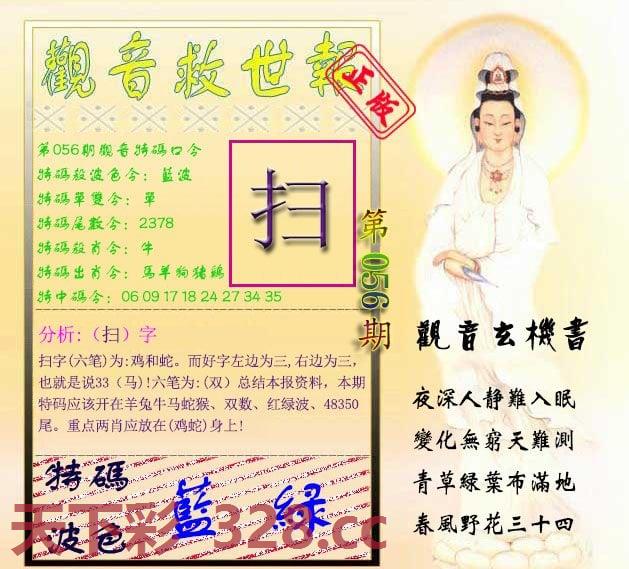 觀音救世報
正版
第056期觀音特碼口令
特碼殺波色令：藍波
特碼單雙令：單
特碼尾數令：2378
特碼殺肖令：牛
特碼出肖令：馬羊狗猪鷄
特中碼令：06 09 17 18 24 27 34 35
扫
第056期
分析:（扫）字
扫字(六笔)为:鸡和蛇。而好字左边为三,右边为三，
也就是说33（马)!六笔为:(双）总结本报资料，本期
特码应该开在羊兔牛马蛇猴、双数、红绿波、48350
尾。重点两肖应放在(鸡蛇)身上!
特碼
波色
藍 綠
天下彩 1328.cc
觀音玄機書
夜深人静難入眠
變化無窮天難測
青草綠葉布滿地
春風野花三十四